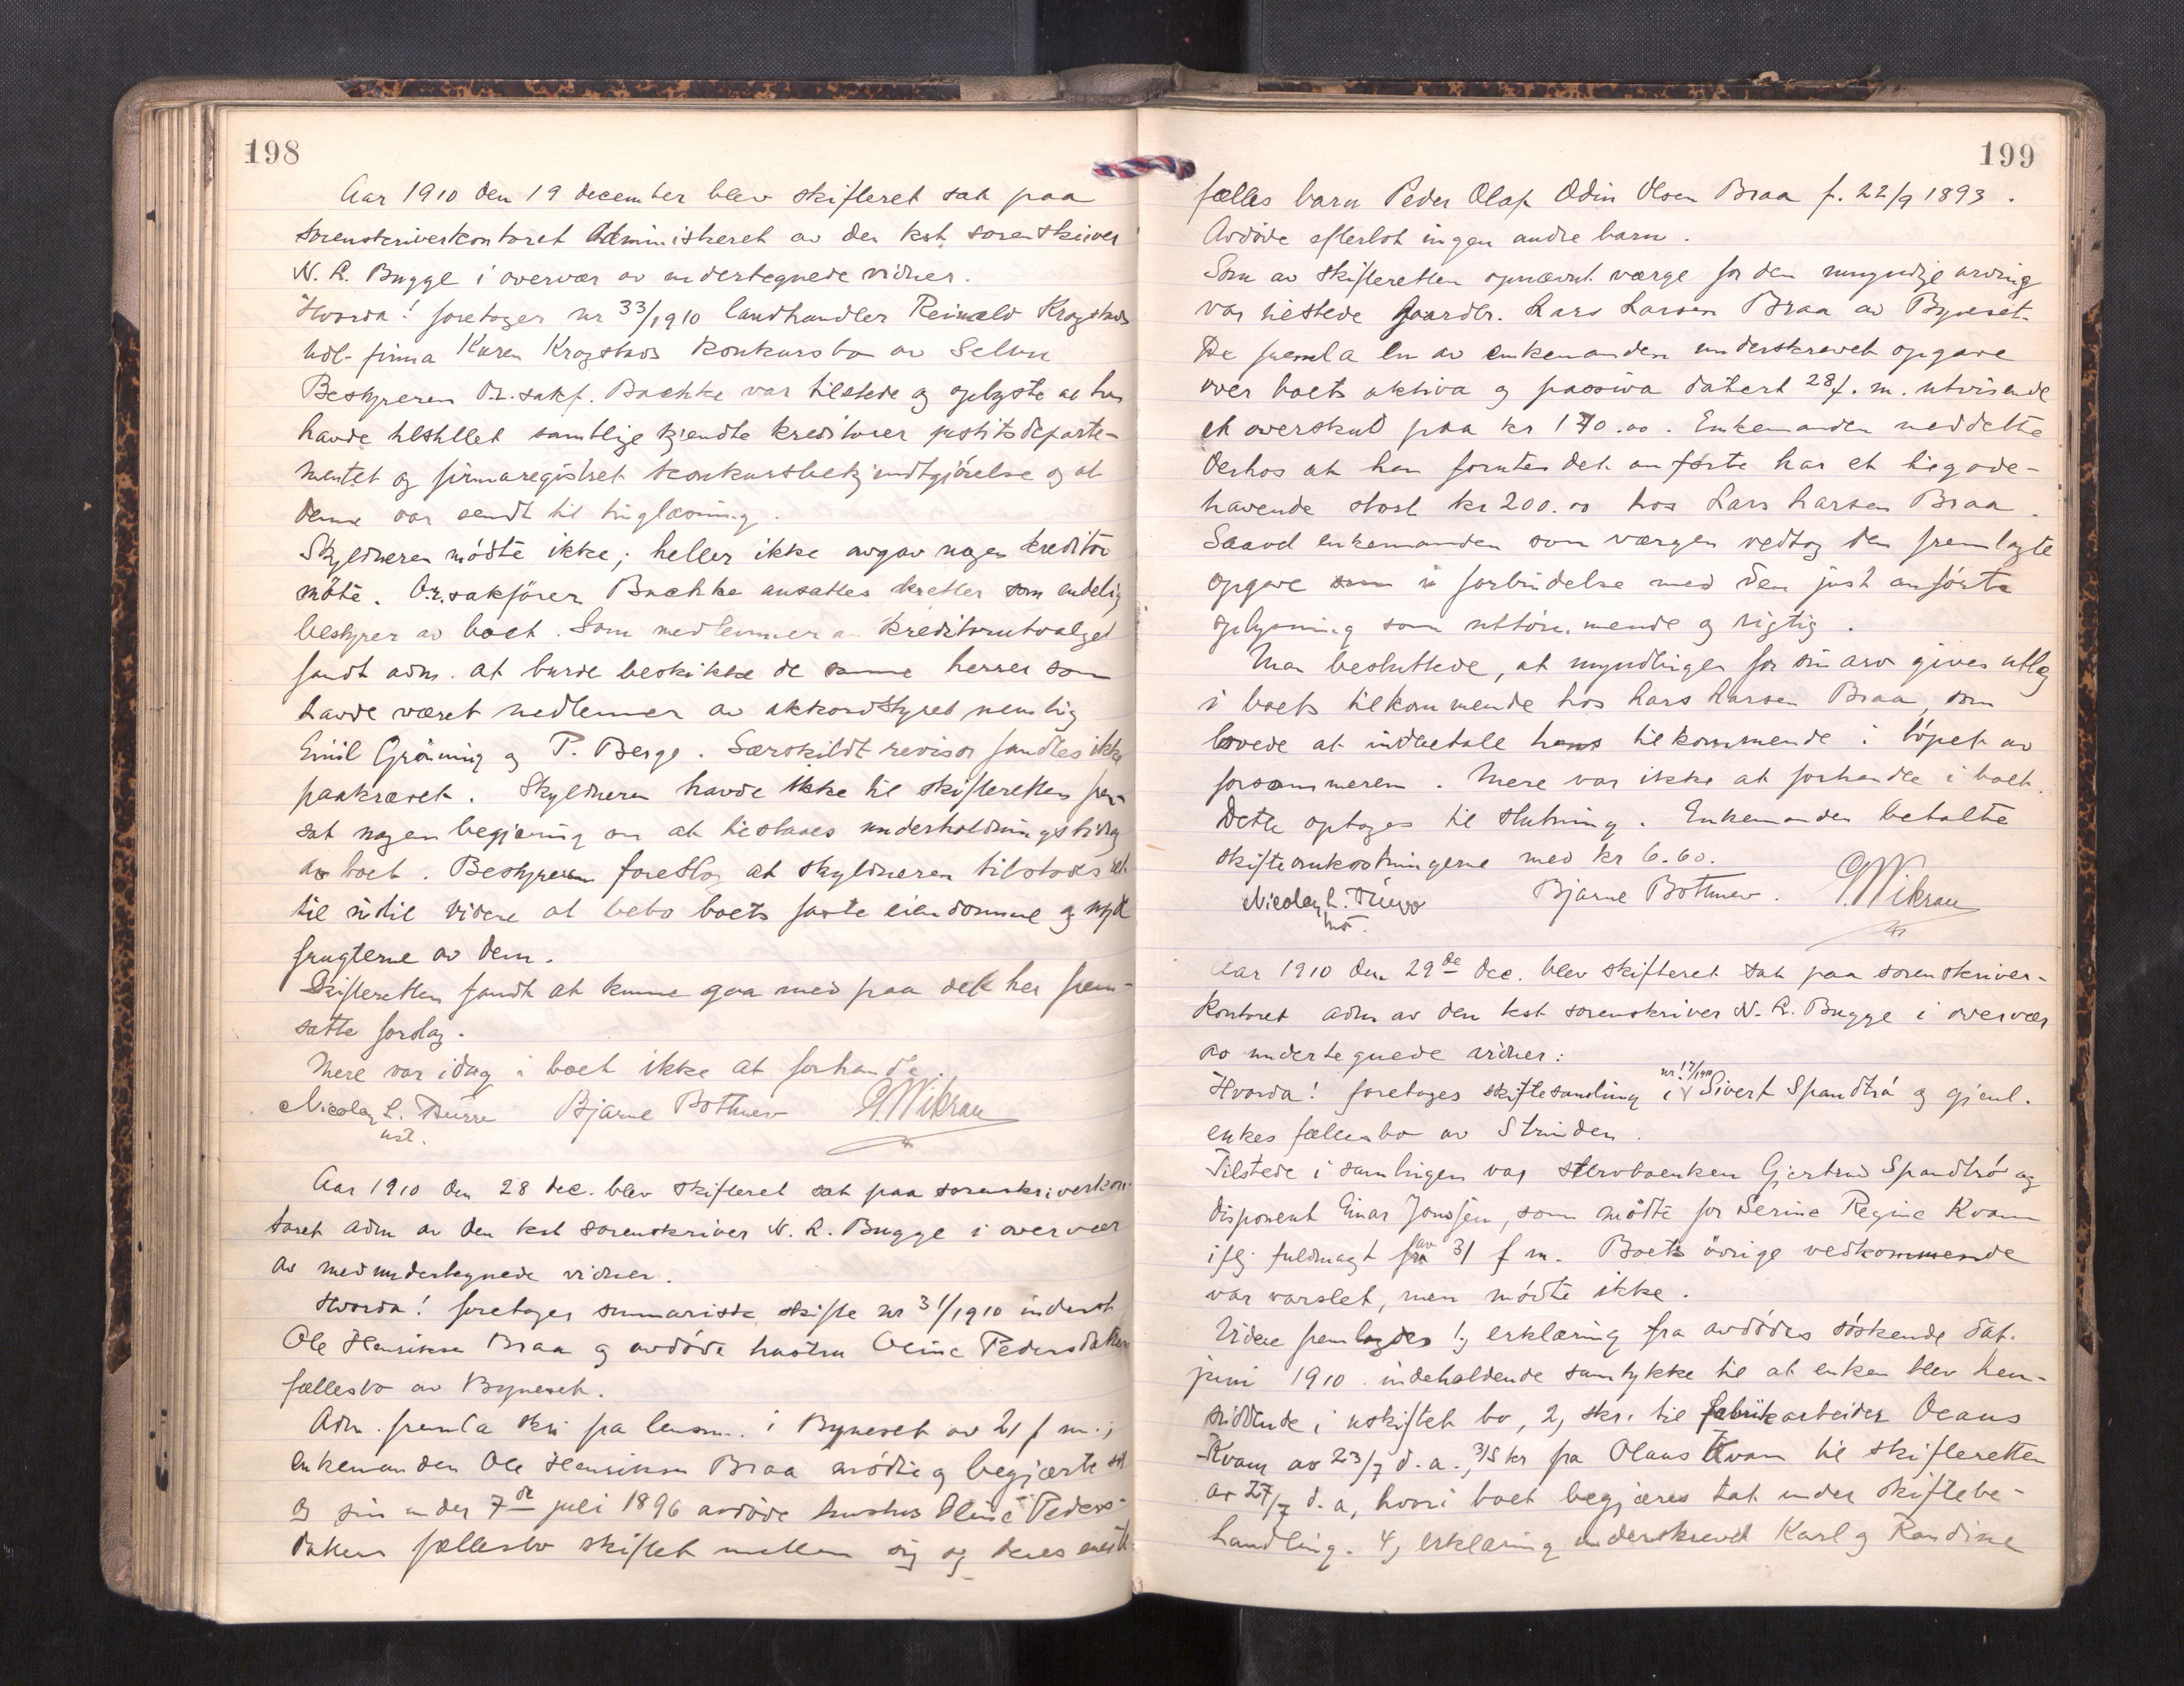 198
Aar 1910 den 19 december blev skifteret sat paa
sorenskriverkontoret administreret av den kst. sorenskriver
N. R. Bugge i overvær av undertegnede vidner.
Hvorda! foretoges nr 33/1910 landhandler Reinald Krogstads
hdl. firma Karen Krogstads konkursbo av Selbu
Bestyreren O.r.sakf. Bachke var tilstede og oplyste at han
havde tilstillet samtlige kjendte kreditorer justitsdeparte-
mentet og firmaregistret konkursbekjendtgjörelse og at
denne var sendt til tinglæsning.
Skyldneren mödte ikke; heller ikke avgav nogen kreditor
möte. O.r.sakförer Bachke ansattes derefter som endelig
bestyrer av boet. Som medlemmer av kreditorutvalget
fandt adm. at burde beskikke de samme herrer som
havde været medlemmer av akkordstyret nemlig
Emil Gröning og P. Berge. Særskildt revisor fandtes ikke
paakrævet. Skyldneren havde ikke til skifteretten frem-
sat nogen begjæring om at tilstaaes underholdningsbidrag
av boet. Bestyreren foreslog at skyldneren tilstodes ret
til indtil videre at bebo boets faste eiendomme og nyde
frugterne av dem.
Skifteretten fandt at kunne gaa med paa det her frem-
satte forslag.
Mere var idag i boet ikke at forhandle.
Nicolay L. Bjarne Bothner
Aar 1910 den 28 dec. blev skifteret sat paa sorenskriverkon-
toret adm av den kst sorenskriver N. R. Bugge i overvær
av medundertegnede vidner.
Hvorda! foretoges summarisk skifte nr 31/1910 inderst
Ole Henriksen Braa og avdöde hustru Oline Pedersdatters
fællesbo av Byneset.
Adm. fremla skr. fra lensm. i Byneset av 21 f m.;
Enkemanden Ole Henriksen Braa mödte og begjærte sit
og sin under 7de juli 1896 avdöde hustru Oline Peders-
datters fællesbo skiftet mellem sig og deres eneste
199
fælles barn Peder Olaf Odin Olsen Braa f. 22/9 1893.
Avdöde efterlot ingen andre barn.
Som av skifteretten opnævnt værge for den umyndige arving
var tilstede gaardbr. Lars Larsen Braa av Byneset.
De fremla en av enkemanden underskrevet opgave
over boets aktiva og passiva datert 28 f. m. utvisende
et overskud paa kr 170.00. Enkemanden meddelte
derhos at han foruten det anførte har et tilgode-
havende stort kr 200.00 hos Lars Larsen Braa.
Saavel enkemanden som værgen vedtog den fremlagte
opgave i forbindelse med den just anförte
oplysning som uttömmende og rigtig.
Man besluttede, at myndlingen for sin arv gives utlæg
i boets tilkommende hos Lars Larsen Braa, som
lovede at indbetale hans tilkommende i löpet av
forsommeren. Mere var ikke at forhandle i boet.
Dette optoges til slutning. Enkemanden betalte
skifteomkostningerne med kr 6.60.
Nicolay L. Bjarne Bothner.
Aar 1910 den 29de dec. blev skifteret sat paa sorenskriver-
kontoret adm av den kst sorenskriver N. R. Bugge i overvær
av undertegnede vidner:
Hvorda! foretoges skiftesamling i nr 17/1910 Sivert Spandtrö og gjenl.
enkes fællesbo av Strinden.
Tilstede i samlingen var stervboenken Gjertrud Spandtrö og
disponent Einar Jenssen, som mötte for Serine Regine Kvam
iflg. fuldmagt av 31 f m. Boets övrige vedkommende
var varslet, men mödte ikke.
Videre fremlagdes 1, erklæring fra avdödes söskende dat.
juni 1910 indeholdende samtykke til at enken blev hen-
siddende i uskiftet bo, 2, skr. til fabrikarbeider Olaus
Kvam av 23/7 d. a., 3, skr fra Olaus Kvam til skifteretten
av 27/7 d. a, hvori boet begjæres tat under skiftebe-
handling. 4, erklæring underskrevet Karl og Randine